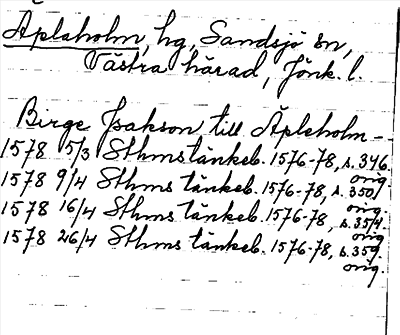 Äpleholm, hg, Sandsjö sn,
Västra härad, Jönk. l.
Birge Isakson till Äpleholm –
1578 5/3 Sthms tänkeb. 1576-78, s. 346
orig.
1578 9/4 Sthms tänkeb. 1576-78, s. 350
orig
1578 16/4 Sthms tänkeb. 1576-78, s. 354
orig
1578 26/4 Sthms tänkeb. 1576-78, s. 359.
orig.